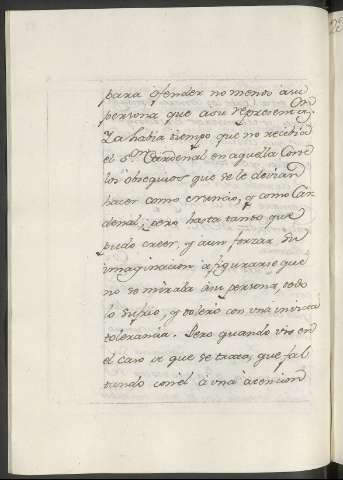 para ofender no menos à su
persona que a su represent.on
Ya habia tiempo que no recibia
el S.r Cardenal en aquella Corte
los obsequios que se le devian
hacer como enviado, y como Car-
denal; pero hasta tanto que
pudo creer, y aun forzar su
imaginacion à figurarse que
no se miraba à su persona, todo
lo sufrio, y tolerò con una invicta
tolerancia. Pero quando vio en
el caso de que se trata, que fal
tando con el à una atencion